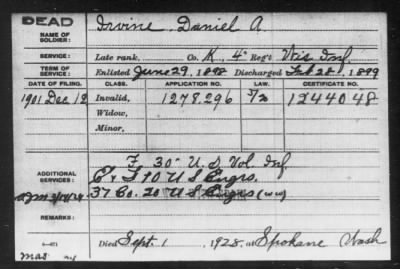 DEAD
NAME OF SOLDIER: Irvine Daniel A.
SERVICE: Late rank, Co. K, 4" Reg't Wis Inf.
TERM OF SERVICE: Enlisted June 29, 1898 Discharged Feb 28, 1899
DATE OF FILING. CLASS. APPLICATION NO. LAW. CERTIFICATE NO.
1901 Dec 12 Invalid, 1278,296 1244048
Widow,
Minor,
ADDITIONAL SERVICES: F 30" U S Vol Inf.
C & I 10 U S Engrs.
37 Co. 20 U S Engrs (WW)
REMARKS:
Died Sept. 1, 1928, at Spokane Wash